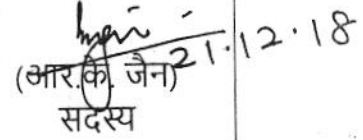 21.12.18
(आर.के. जैन)
सदस्य